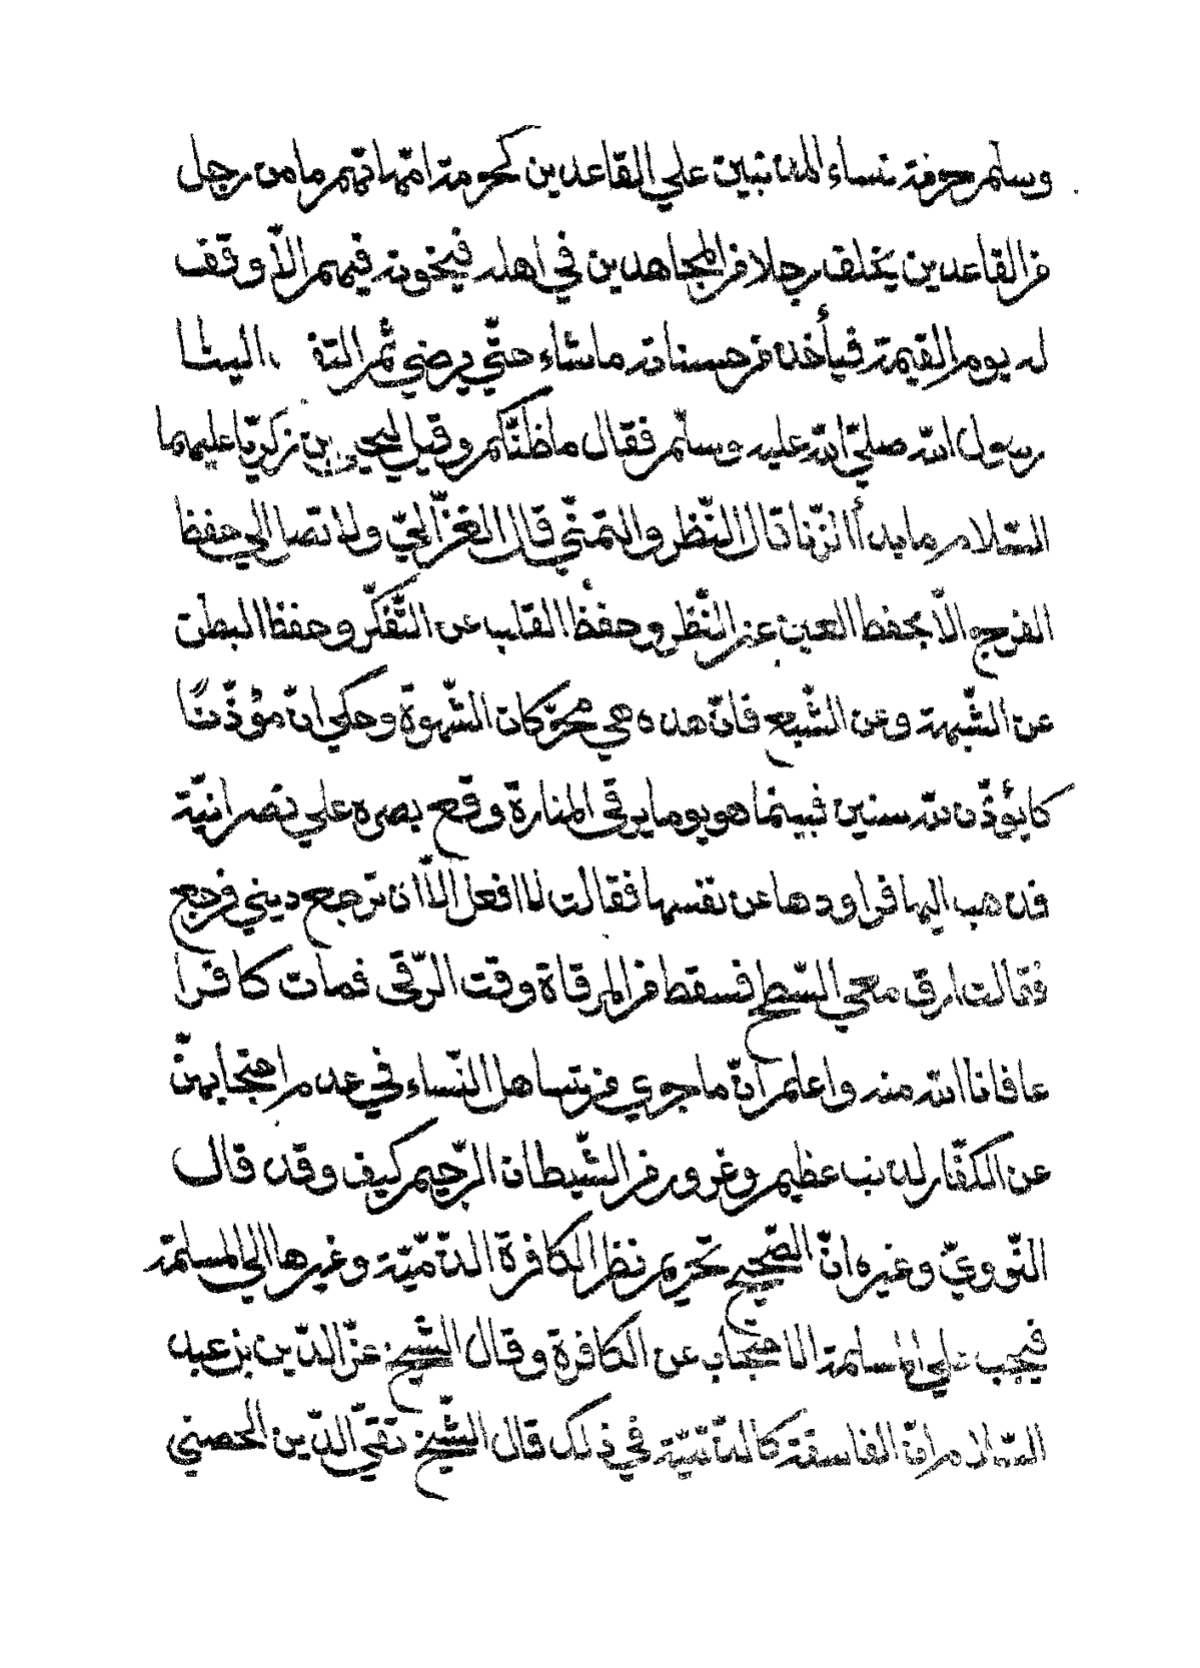 وسلّم حرمة نساء المذنبين علي القاعدين كحرمة امّهاتهم ما من رجل
من القاعدين يخلف رجلا من المجاهدين في اهله فيخونه فيهم الاّ وقف
له يوم القيمة فيأخذ من حسناته ما شاء حتّي يرضي ثمّ التفـ الينا
رسول الله صلّي الله عليه وسلّم فقال ما ظنّكم وقيل ليحيي بن زكريّا عليهما
السّلام ما بدأ الزّنا قال النّظر والتمنّي قال الغزّاليّ ولا تصل الي حفظ
الفرج الاّ بحفظ العين عن النّظر وحفظ القلب عن التّفكّر وحفظ البطن
عن الشّبهة وعن الشّبع فانّ هذه هي محرّكات الشّهوة وحكي انّ مؤذّنًا
كا يؤذّن لله سنين فبينما هو يوما يرقي المنارة وقع بصره علي نصرانيّة
فذهب اليها فراودها عن نفسها فقالت لا افعل الاّ ان ترجع ديني فرجع
فقالت ارق معي السّطح فسقط من المرقاة وقت الرّقي فمات كافرا
عافانا الله منه واعلم انّ ما جري من تساهل النّساء في عدم احتجابهنّ
عن الكفّار لذنب عظيم وغرور من الشّيطان الرّجيم كيف وقد قال
النّوويّ وغيره انّ الصّحيح تحريم نظر الكافرة الذّمّيّة وغيرها الي المسلمة
فيجب علي المسلمة الاحتجاب عن الكافرة وقال الشّيخ عزّ الدّين بن عبد
السّلام انّ الفاسقة كالذّمّيّة في ذلك قال الشّيخ تقيّ الدّين الحصني